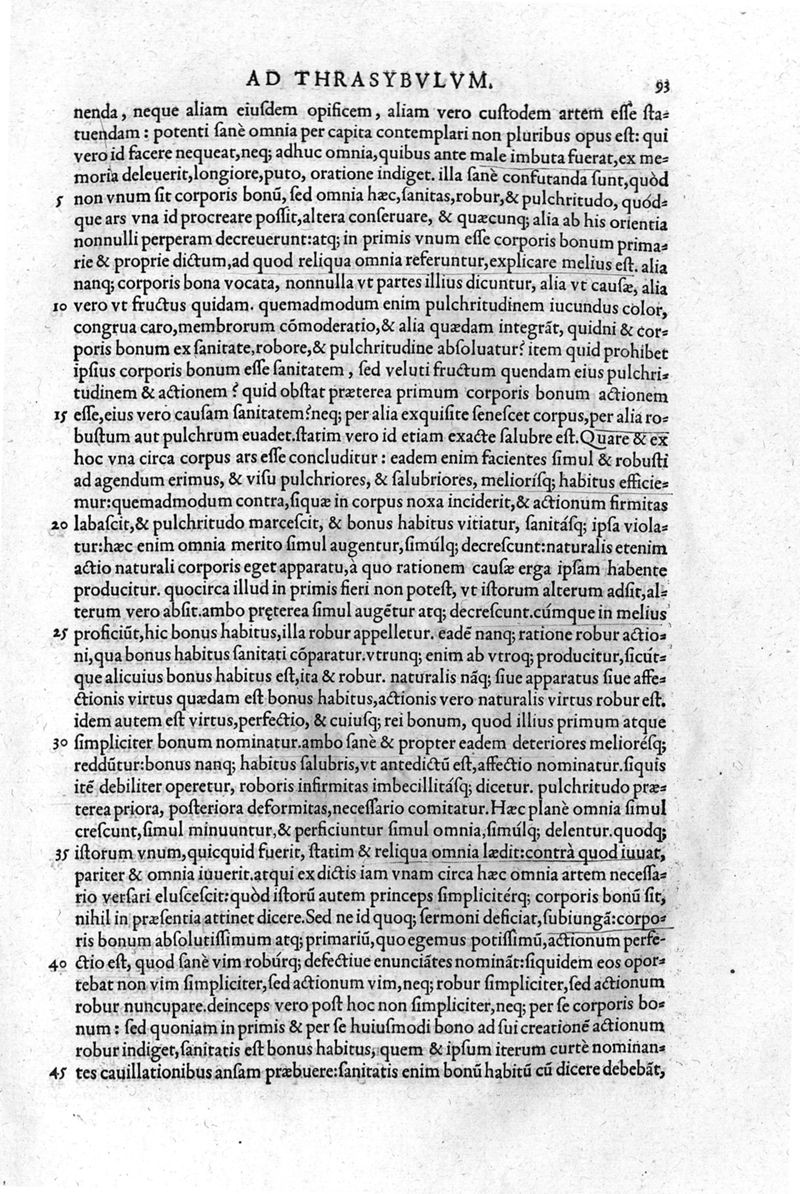 AD THRASYBVLVM. 93
nenda, neque aliam eiuſdem opificem, aliam vero cuſtodem artem eſſe ſta-
tuendam: potenti ſanè omnia per capita contemplari non pluribus opus eſt: qui
vero id facere nequeat, neq; adhuc omnia, quibus ante male imbuta fuerat, ex me-
moria deleuerit, longiore, puto, oratione indiget. illa ſanè confutanda ſunt, quòd
5 non vnum ſit corporis bonũ, ſed omnia hæc, ſanitas, robur, & pulchritudo, quód-
que ars vna id procreare poſſit, altera conſeruare, & quæcunq; alia ab his orientia
nonnulli perperam decreuerunt: atq; in primis vnum eſſe corporis bonum prima-
rie & proprie dictum, ad quod reliqua omnia referuntur, explicare melius eſt. alia
nanq; corporis bona vocata, nonnulla vt partes illius dicuntur, alia vt cauſæ, alia
10 vero vt fructus quidam. quemadmodum enim pulchritudinem iucundus color,
congrua caro, membrorum cõmoderatio, & alia quædam integrãt, quidni & cor-
poris bonum ex ſanitate, robore, & pulchritudine abſoluatur? item quid prohibet
ipſius corporis bonum eſſe ſanitatem, ſed veluti fructum quendam eius pulchri-
tudinem & actionem? quid obſtat præterea primum corporis bonum actionem
15 eſſe, eius vero cauſam ſanitatem? neq; per alia exquiſite ſeneſcet corpus, per alia ro-
buſtum aut pulchrum euadet. ſtatim vero id etiam exacte ſalubre eſt. Quare & ex
hoc vna circa corpus ars eſſe concluditur: eadem enim facientes ſimul & robuſti
ad agendum erimus, & viſu pulchriores, & ſalubriores, melioriſq; habitus efficie-
mur: quemadmodum contra, ſiquæ in corpus noxa inciderit, & actionum firmitas
20 labaſcit, & pulchritudo marceſcit, & bonus habitus vitiatur, ſanitáſq; ipſa viola-
tur: hæc enim omnia merito ſimul augentur, ſimúlq; decreſcunt: naturalis etenim
actio naturali corporis eget apparatu, à quo rationem cauſæ erga ipſam habente
producitur. quocirca illud in primis fieri non poteſt, vt iſtorum alterum adſit, al-
terum vero abſit. ambo pręterea ſimul augẽtur atq; decreſcunt. cúmque in melius
25 proficiũt, hic bonus habitus, illa robur appelletur. eadẽ nanq; ratione robur actio-
ni, qua bonus habitus ſanitati cõparatur. vtrunq; enim ab vtroq; producitur, ſicút-
que alicuius bonus habitus eſt, ita & robur. naturalis nãq; ſiue apparatus ſiue affe-
ctionis virtus quædam eſt bonus habitus, actionis vero naturalis virtus robur eſt.
idem autem eſt virtus, perfectio, & cuiuſq; rei bonum, quod illius primum atque
30 ſimpliciter bonum nominatur. ambo ſanè & propter eadem deteriores melioréſq;
reddũtur: bonus nanq; habitus ſalubris, vt antedictũ eſt, affectio nominatur. ſiquis
itẽ debiliter operetur, roboris infirmitas imbecillitáſq; dicetur. pulchritudo præ-
terea priora, poſteriora deformitas, neceſſario comitatur. Hæc planè omnia ſimul
creſcunt, ſimul minuuntur, & perficiuntur ſimul omnia, ſimúlq; delentur. quodq;
35 iſtorum vnum, quicquid fuerit, ſtatim & reliqua omnia lædit: contrà quod iuuat,
pariter & omnia iuuerit. atqui ex dictis iam vnam circa hæc omnia artem neceſſa-
rio verſari eluſceſcit: quòd iſtorũ autem princeps ſimplicitérq; corporis bonũ ſit,
nihil in præſentia attinet dicere. Sed ne id quoq; ſermoni deficiat, ſubiungã: corpo-
ris bonum abſolutiſſimum atq; primariũ, quo egemus potiſſimũ, actionum perfe-
40 ctio eſt, quod ſanè vim robúrq; defectiue enunciãtes nominãt: ſiquidem eos opor-
tebat non vim ſimpliciter, ſed actionum vim, neq; robur ſimpliciter, ſed actionum
robur nuncupare. deinceps vero poſt hoc non ſimpliciter, neq; per ſe corporis bo-
num: ſed quoniam in primis & per ſe huiuſmodi bono ad ſui creationẽ actionum
robur indiget, ſanitatis eſt bonus habitus, quem & ipſum iterum curtè nominan-
45 tes cauillationibus anſam præbuere: ſanitatis enim bonũ habitũ cũ dicere debebãt,